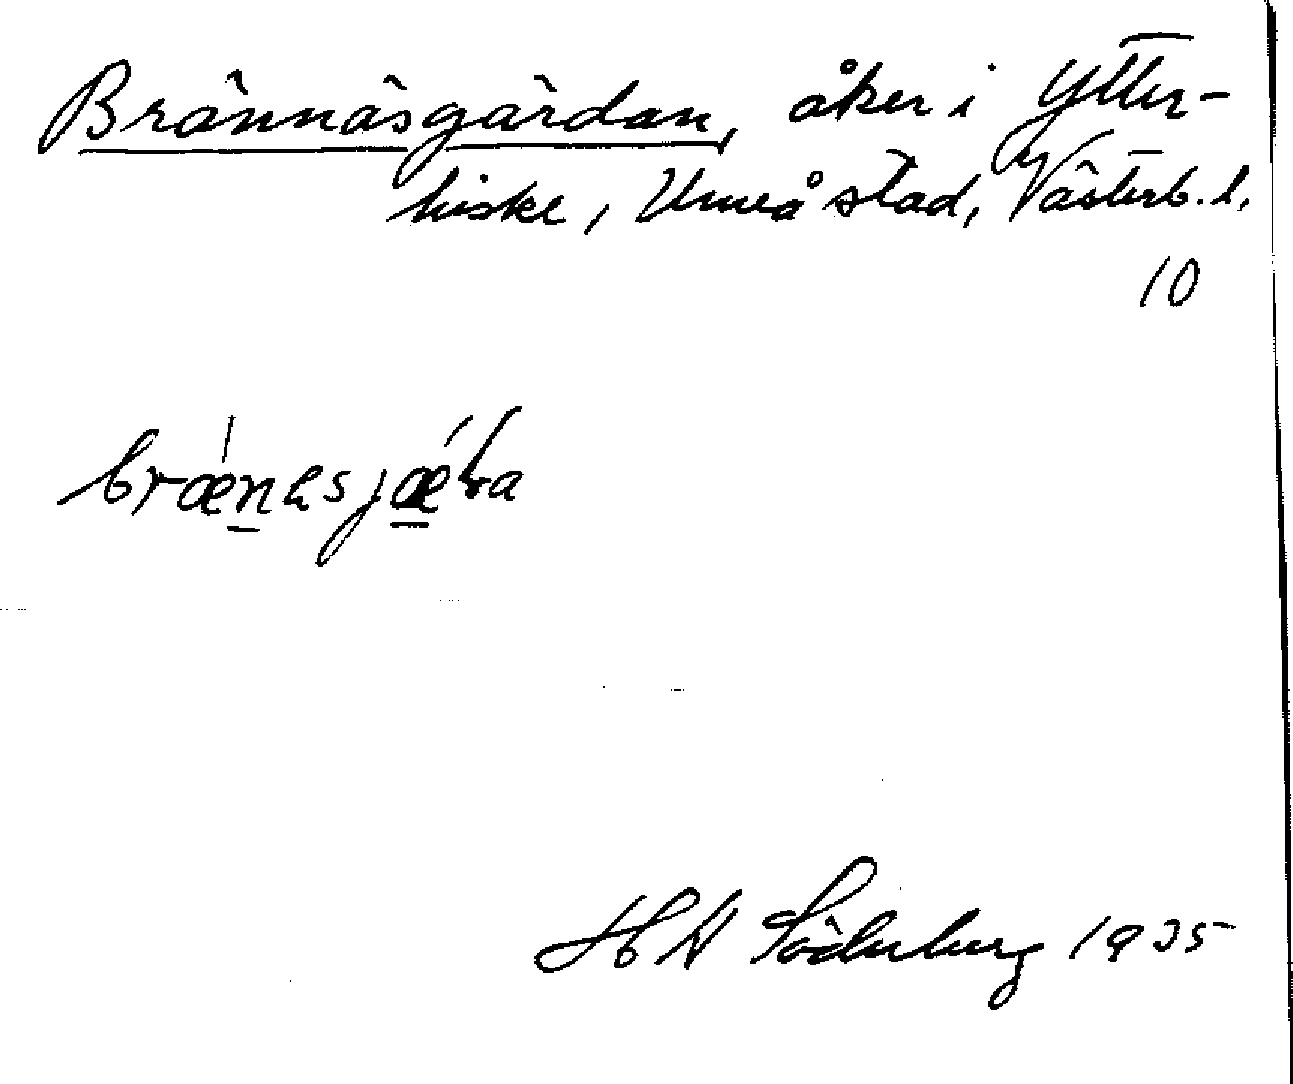 Brännäsgärdan, åker i Ytter-
hiske, Umeå stad, Västerb. l.
10
brænesjæɽa
H A Söderberg 1935